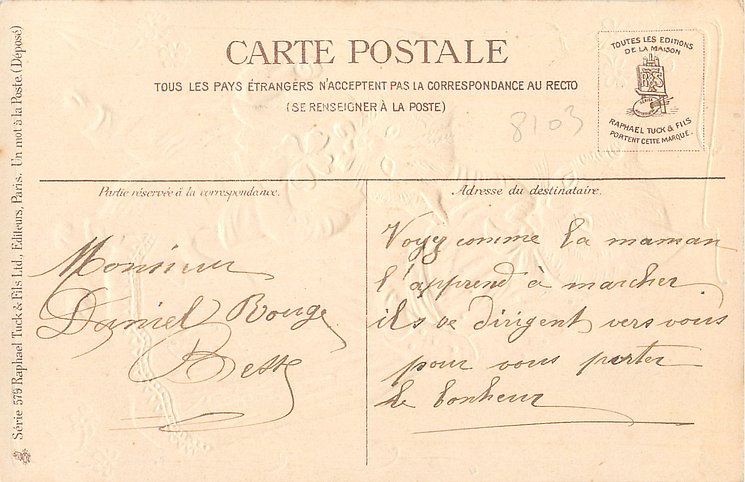 CARTE POSTALE
TOUS LES PAYS ÉTRANGERS N'ACCEPTENT PAS LA CORRESPONDANCE AU RECTO
(SE RENSEIGNER À LA POSTE)
TOUTES LES EDITIONS
DE LA MAISON
RAPHAEL TUCK & FILS
PORTENT CETTE MARQUE.
8103
Partie réservée à la correspondance.
Monsieur
Daniel Rouge
Besse
Adresse du destinataire.
Voyez comme la maman
l'apprend à marcher
ils se dirigent vers vous
pour vous porter
le bonheur
Série 579 Raphael Tuck & Fils Ltd., Editeurs, Paris. Un mot à la Poste (Déposé)